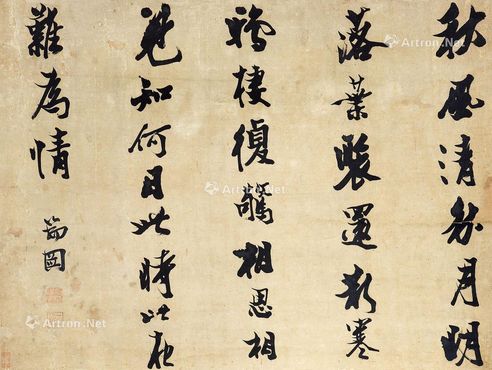 秋風清秋月明
落葉聚還散寒
鴉棲復驚相思相
見知何日此時此夜
難為情
瑞圖
Artron.Net
Artron.Net
Artron.Net
Artron.Net
Artron.Net